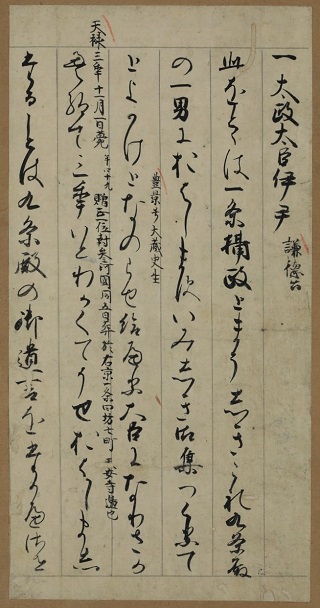 一太政大臣伊尹 謙徳公
此おとゝは一条摂政とまうしき これ九条殿
の一男におはします いみしき御集つくりて
豊景号大蔵史生
とよかけとなのらせ給 大臣になりさか
天禄三年十一月一日薨 年四十九 贈正一位封参河國同五日葬於右京一条四坊七町 安寺邊也
え給て三年いとわかくてうせおはしまし
ことは九条殿の御遺言